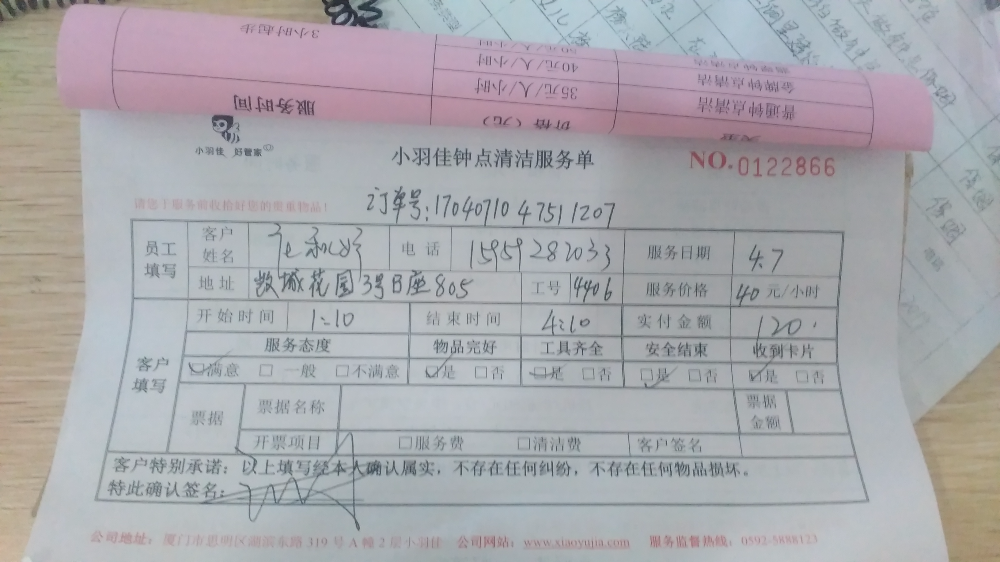 3小时起步
40元/人/小时
金牌钟点清洁
35元/人/小时
普通钟点清洁
服务时间
价格(元)
小羽佳 好管家
小羽佳钟点清洁服务单
NO.0122866
订单号:17040710 47511207
员工填写
客户姓名
电话 15959282033
服务日期 4.7
地址 花园3号B座805
工号 4406
服务价格 40元/小时
客户填写
开始时间 1:10
结束时间 4:10
实付金额 120.
服务态度 物品完好 工具齐全 安全结束 收到卡片
☑满意 □一般 □不满意 ☑是 □否 ☑是 □否 ☑是 □否 ☑是 □否
票据
票据名称
票据金额
开票项目 □服务费 □清洁费 客户签名
客户特别承诺:以上填写经本人确认属实,不存在任何纠纷,不存在任何物品损坏。
特此确认签名:
公司地址:厦门市思明区湖滨东路319号A幢2层小羽佳 公司网站:www.xiaoyujia.com 服务监督热线:0592-5888123